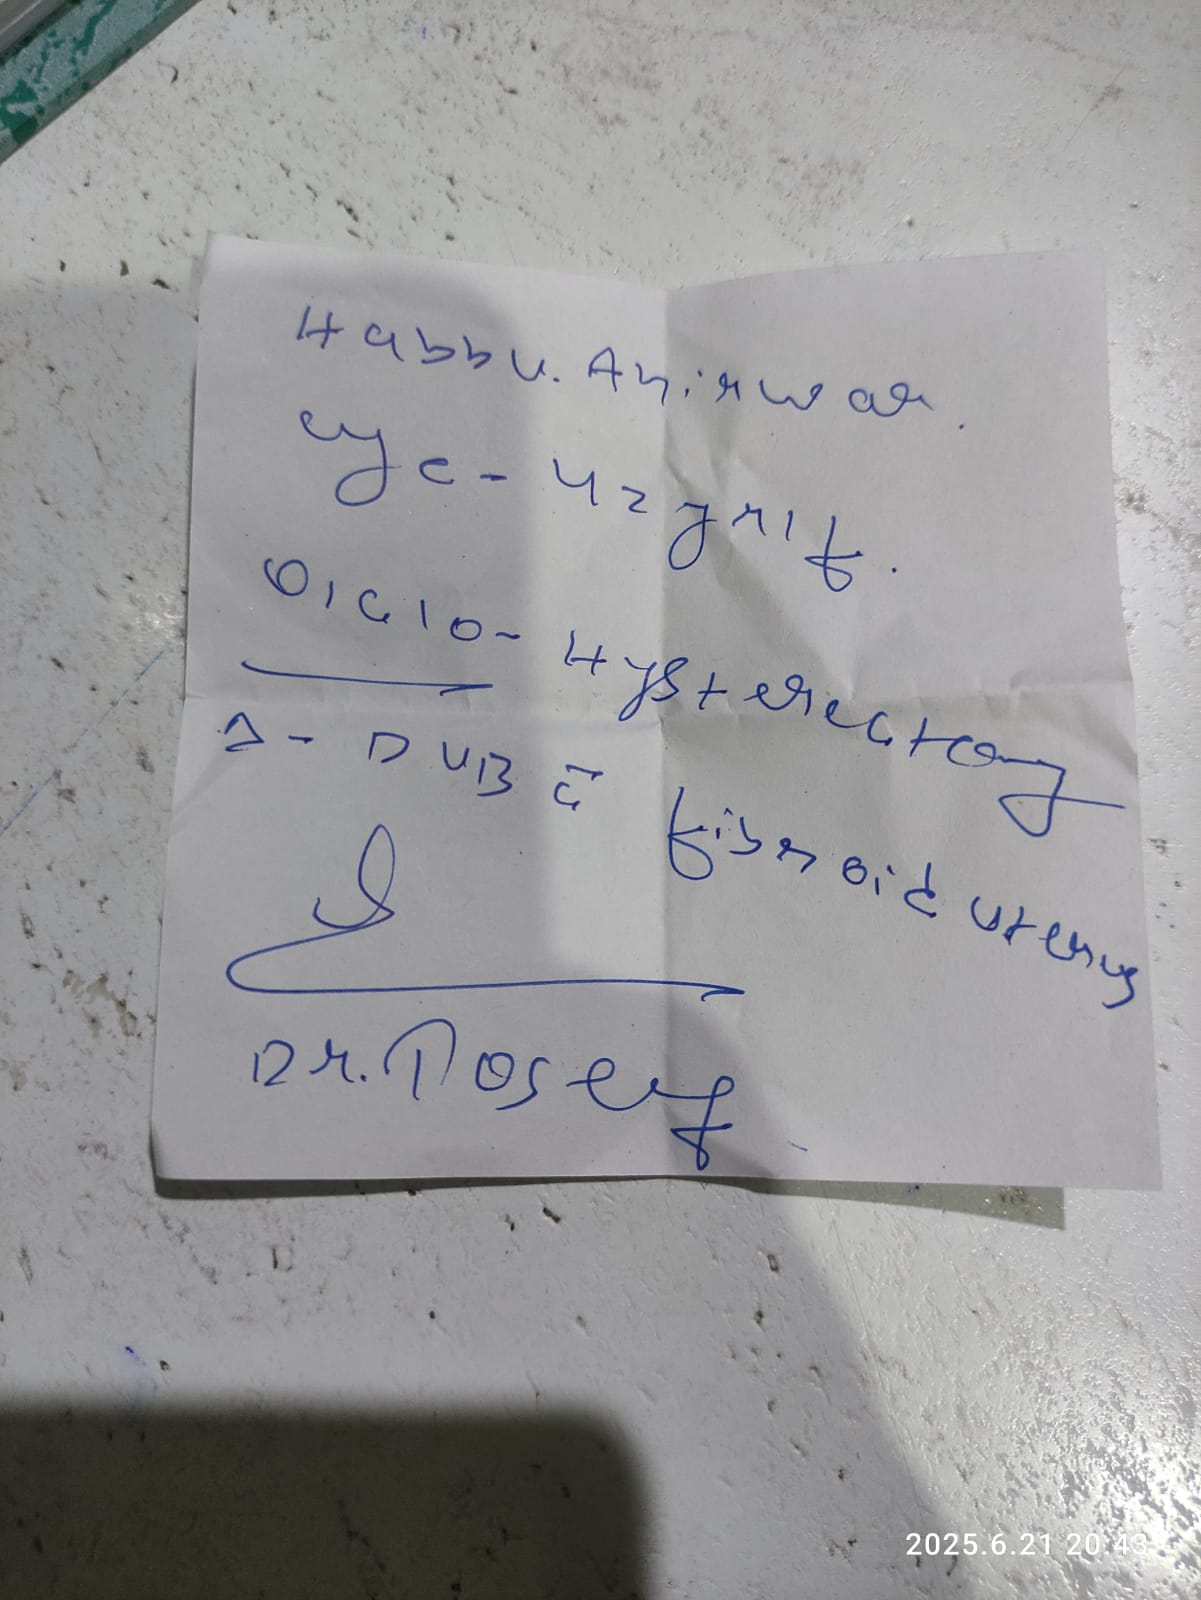 Habbu. Ahirwar.
age - 42 yr / f.
O/C/O - Hysterectomy
Δ - DUB c̄ fibroid uterus
Dr.
2025.6.21 20:43